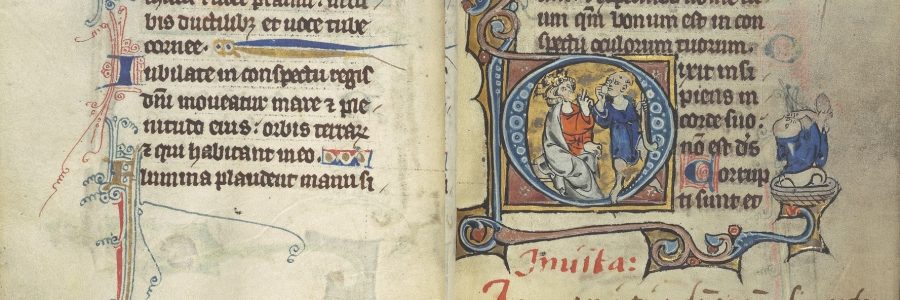 bis ductilibꝫ et uoce tube
cornee.
Iubilate in conspectu regis
dñi moueatur mare ⁊ ple
nitudo eius: orbis terraꝝ
⁊ qui habitant in eo.
Flumina plaudent manu si
um qm̄ bonum est in con
spectu oculorum tuorum.
Dixit insi
piens in
corde suo
nō est ds̄
Corrup
ti sunt et
Inuita: